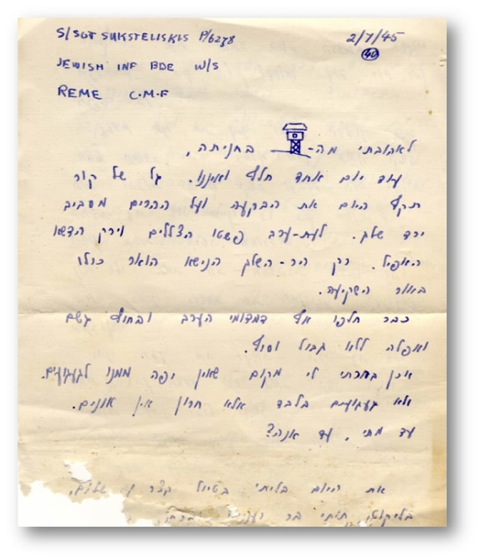 S/SGT SUKSTELISKIS P/6278
2/7/45
40
JEWISH INF BDE W/S
REME C.M.F
לאהובתי מה- בחניתה,
עוד יום אחד חלף ואיננו. גל של קור
תקף היום את הבקעה ועל ההרים מסביב
ירד שלג. לעת-ערב פשטו הצללים וירק הדשא
האפיל. רק הר-השלג הנישא הואר כולו
באור השקיעה.
כבר חלפו אף דמדומי הערב ובחוץ גשם
ואפלה ללא גבול וסוף.
אכן בחרתי לי מקום שאין יפה ממנו לגעגועים.
ולא געגועים בלבד אלא חרון אין אונים.
עד מתי, עד אנה?
את היום בליתי בטיול קצר